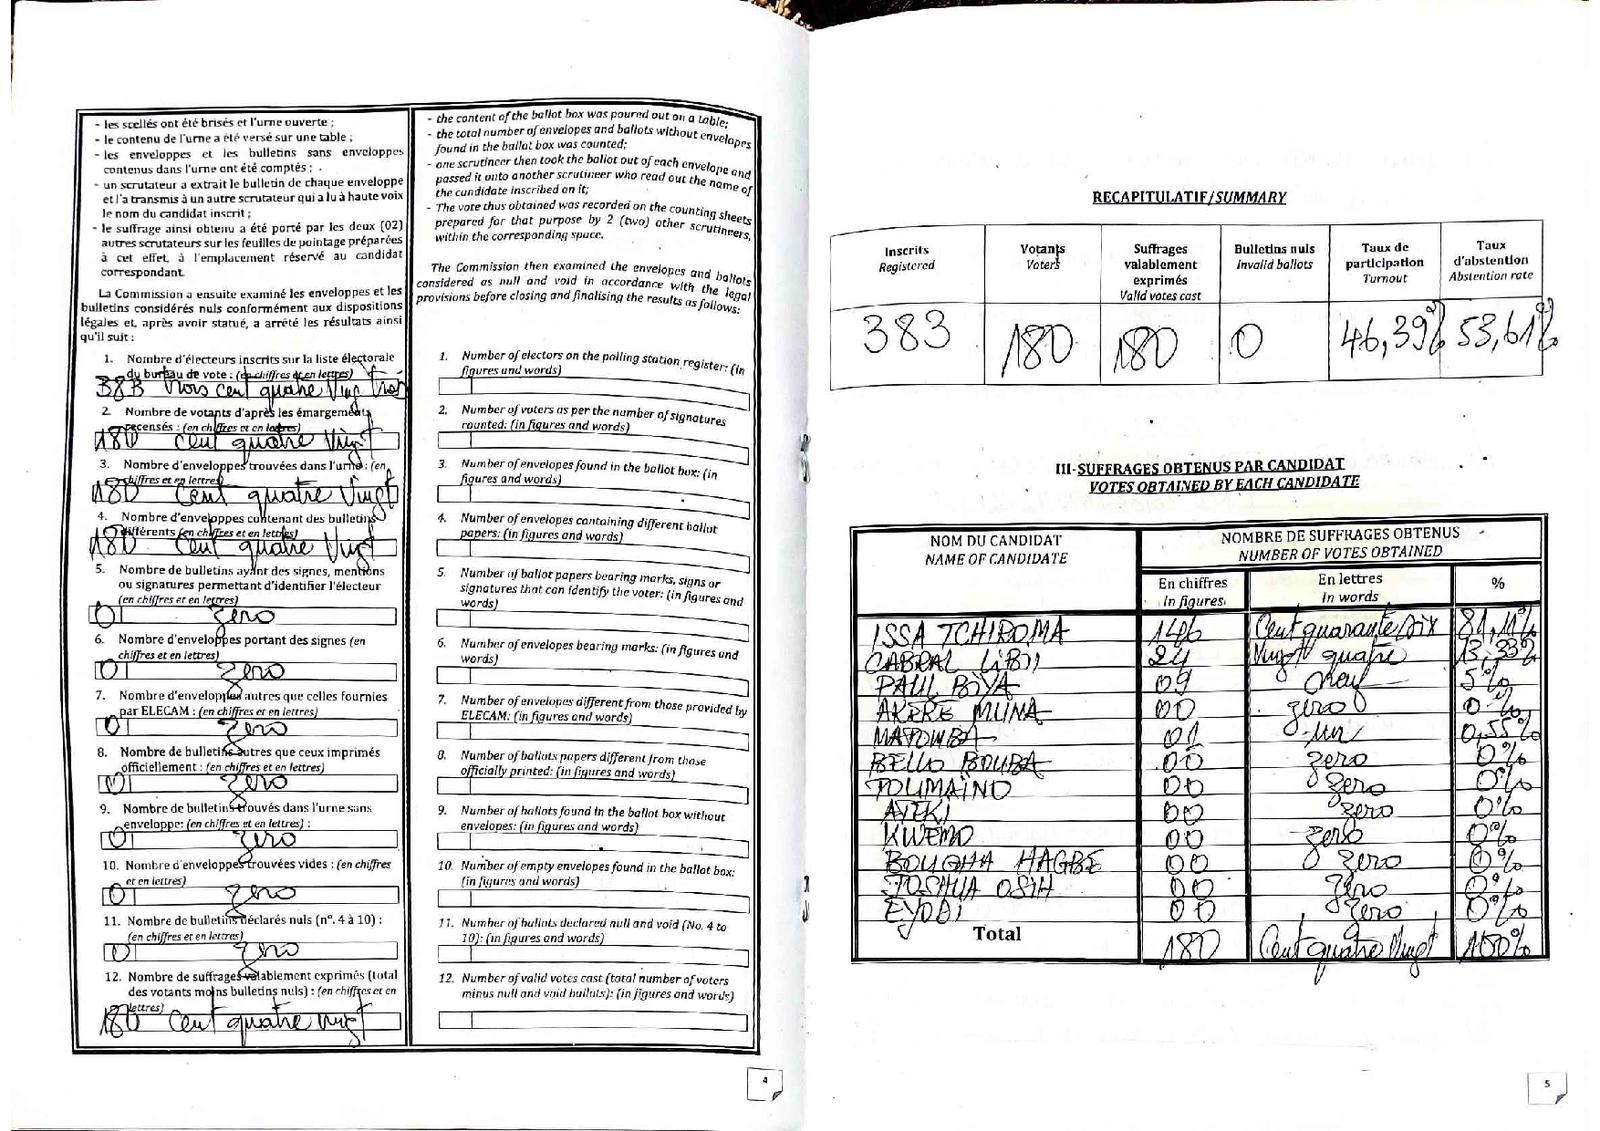 - les scellés ont été brisés et l'urne ouverte ;
- le contenu de l'urne a été versé sur une table ;
- les enveloppes et les bulletins sans enveloppes
contenus dans l'urne ont été comptés ;
- un scrutateur a extrait le bulletin de chaque enveloppe
et l'a transmis à un autre scrutateur qui a lu à haute voix
le nom du candidat inscrit ;
- le suffrage ainsi obtenu a été porté par les deux (02)
autres scrutateurs sur les feuilles de pointage préparées
à cet effet, à l'emplacement réservé au candidat
correspondant.
La Commission a ensuite examiné les enveloppes et les
bulletins considérés nuls conformément aux dispositions
légales et, après avoir statué, a arrêté les résultats ainsi
qu'il suit :
1. Nombre d'électeurs inscrits sur la liste électorale
du bureau de vote : (en chiffres et en lettres)
383 trois cent quatre Vingt trois
2. Nombre de votants d'après les émargements
recensés : (en chiffres et en lettres)
180 cent quatre Vingt
3. Nombre d'enveloppes trouvées dans l'urne : (en
chiffres et en lettres)
180 Cent quatre Vingt
4. Nombre d'enveloppes contenant des bulletins
différents (en chiffres et en lettres)
180 Cent quatre Vingt
5. Nombre de bulletins ayant des signes, mentions
ou signatures permettant d'identifier l'électeur
(en chiffres et en lettres)
0 zero
6. Nombre d'enveloppes portant des signes (en
chiffres et en lettres)
0 zero
7. Nombre d'enveloppes autres que celles fournies
par ELECAM : (en chiffres et en lettres)
0 zero
8. Nombre de bulletins autres que ceux imprimés
officiellement : (en chiffres et en lettres)
0 zero
9. Nombre de bulletins trouvés dans l'urne sans
enveloppe: (en chiffres et en lettres) :
0 zero
10. Nombre d'enveloppes trouvées vides : (en chiffres
et en lettres)
0 zero
11. Nombre de bulletins déclarés nuls (n°. 4 à 10) :
(en chiffres et en lettres)
0 zero
12. Nombre de suffrages valablement exprimés (total
des votants moins bulletins nuls) : (en chiffres et en
lettres)
180 cent quatre vingt
- the content of the ballot box was poured out on a table;
- the total number of envelopes and ballots without envelopes
found in the ballot box was counted;
- one scrutineer then took the ballot out of each envelope and
passed it onto another scrutineer who read out the name of
the candidate inscribed on it;
- The vote thus obtained was recorded on the counting sheets
prepared for that purpose by 2 (two) other scrutineers,
within the corresponding space.
The Commission then examined the envelopes and ballots
considered as null and void in accordance with the legal
provisions before closing and finalising the results as follows:
1. Number of electors on the polling station register: (in
figures and words)
2. Number of voters as per the number of signatures
counted: (in figures and words)
3. Number of envelopes found in the ballot box: (in
figures and words)
4. Number of envelopes containing different ballot
papers: (in figures and words)
5. Number of ballot papers bearing marks, signs or
signatures that can identify the voter: (in figures and
words)
6. Number of envelopes bearing marks: (in figures and
words)
7. Number of envelopes different from those provided by
ELECAM: (in figures and words)
8. Number of ballots papers different from those
officially printed: (in figures and words)
9. Number of ballots found in the ballot box without
envelopes: (in figures and words)
10. Number of empty envelopes found in the ballot box:
(in figures and words)
11. Number of ballots declared null and void (No. 4 to
10): (in figures and words)
12. Number of valid votes cast (total number of voters
minus null and void ballots): (in figures and words)
4
RECAPITULATIF/SUMMARY
Inscrits Registered | Votants Voters | Suffrages valablement exprimés Valid votes cast | Bulletins nuls Invalid ballots | Taux de participation Turnout | Taux d'abstention Abstention rate
383 180 180 0 46,39% 53,61%
III-SUFFRAGES OBTENUS PAR CANDIDAT
VOTES OBTAINED BY EACH CANDIDATE
NOM DU CANDIDAT NOMBRE DE SUFFRAGES OBTENUS
NAME OF CANDIDATE NUMBER OF VOTES OBTAINED
En chiffres En lettres %
In figures In words
ISSA TCHIROMA 146 Cent quarante six 81,11%
CABRAL LiBii 24 Vingt quatre 13,33%
PAUL BiYA 09 neuf 5%
AKERE MUNA 00 zero 0%
MATOMBA 01 un 0,55%
BELLO BOUBA 00 zero 0%
TOUMAÏNO 00 zero 0%
ATEKI 00 zero 0%
KWEMO 00 zero 0%
BOUGHA HAGBE 00 zero 0%
JOSHUA OSIH 00 zero 0%
EYODi 00 zero 0%
Total 180 Cent quatre Vingt 100%
5